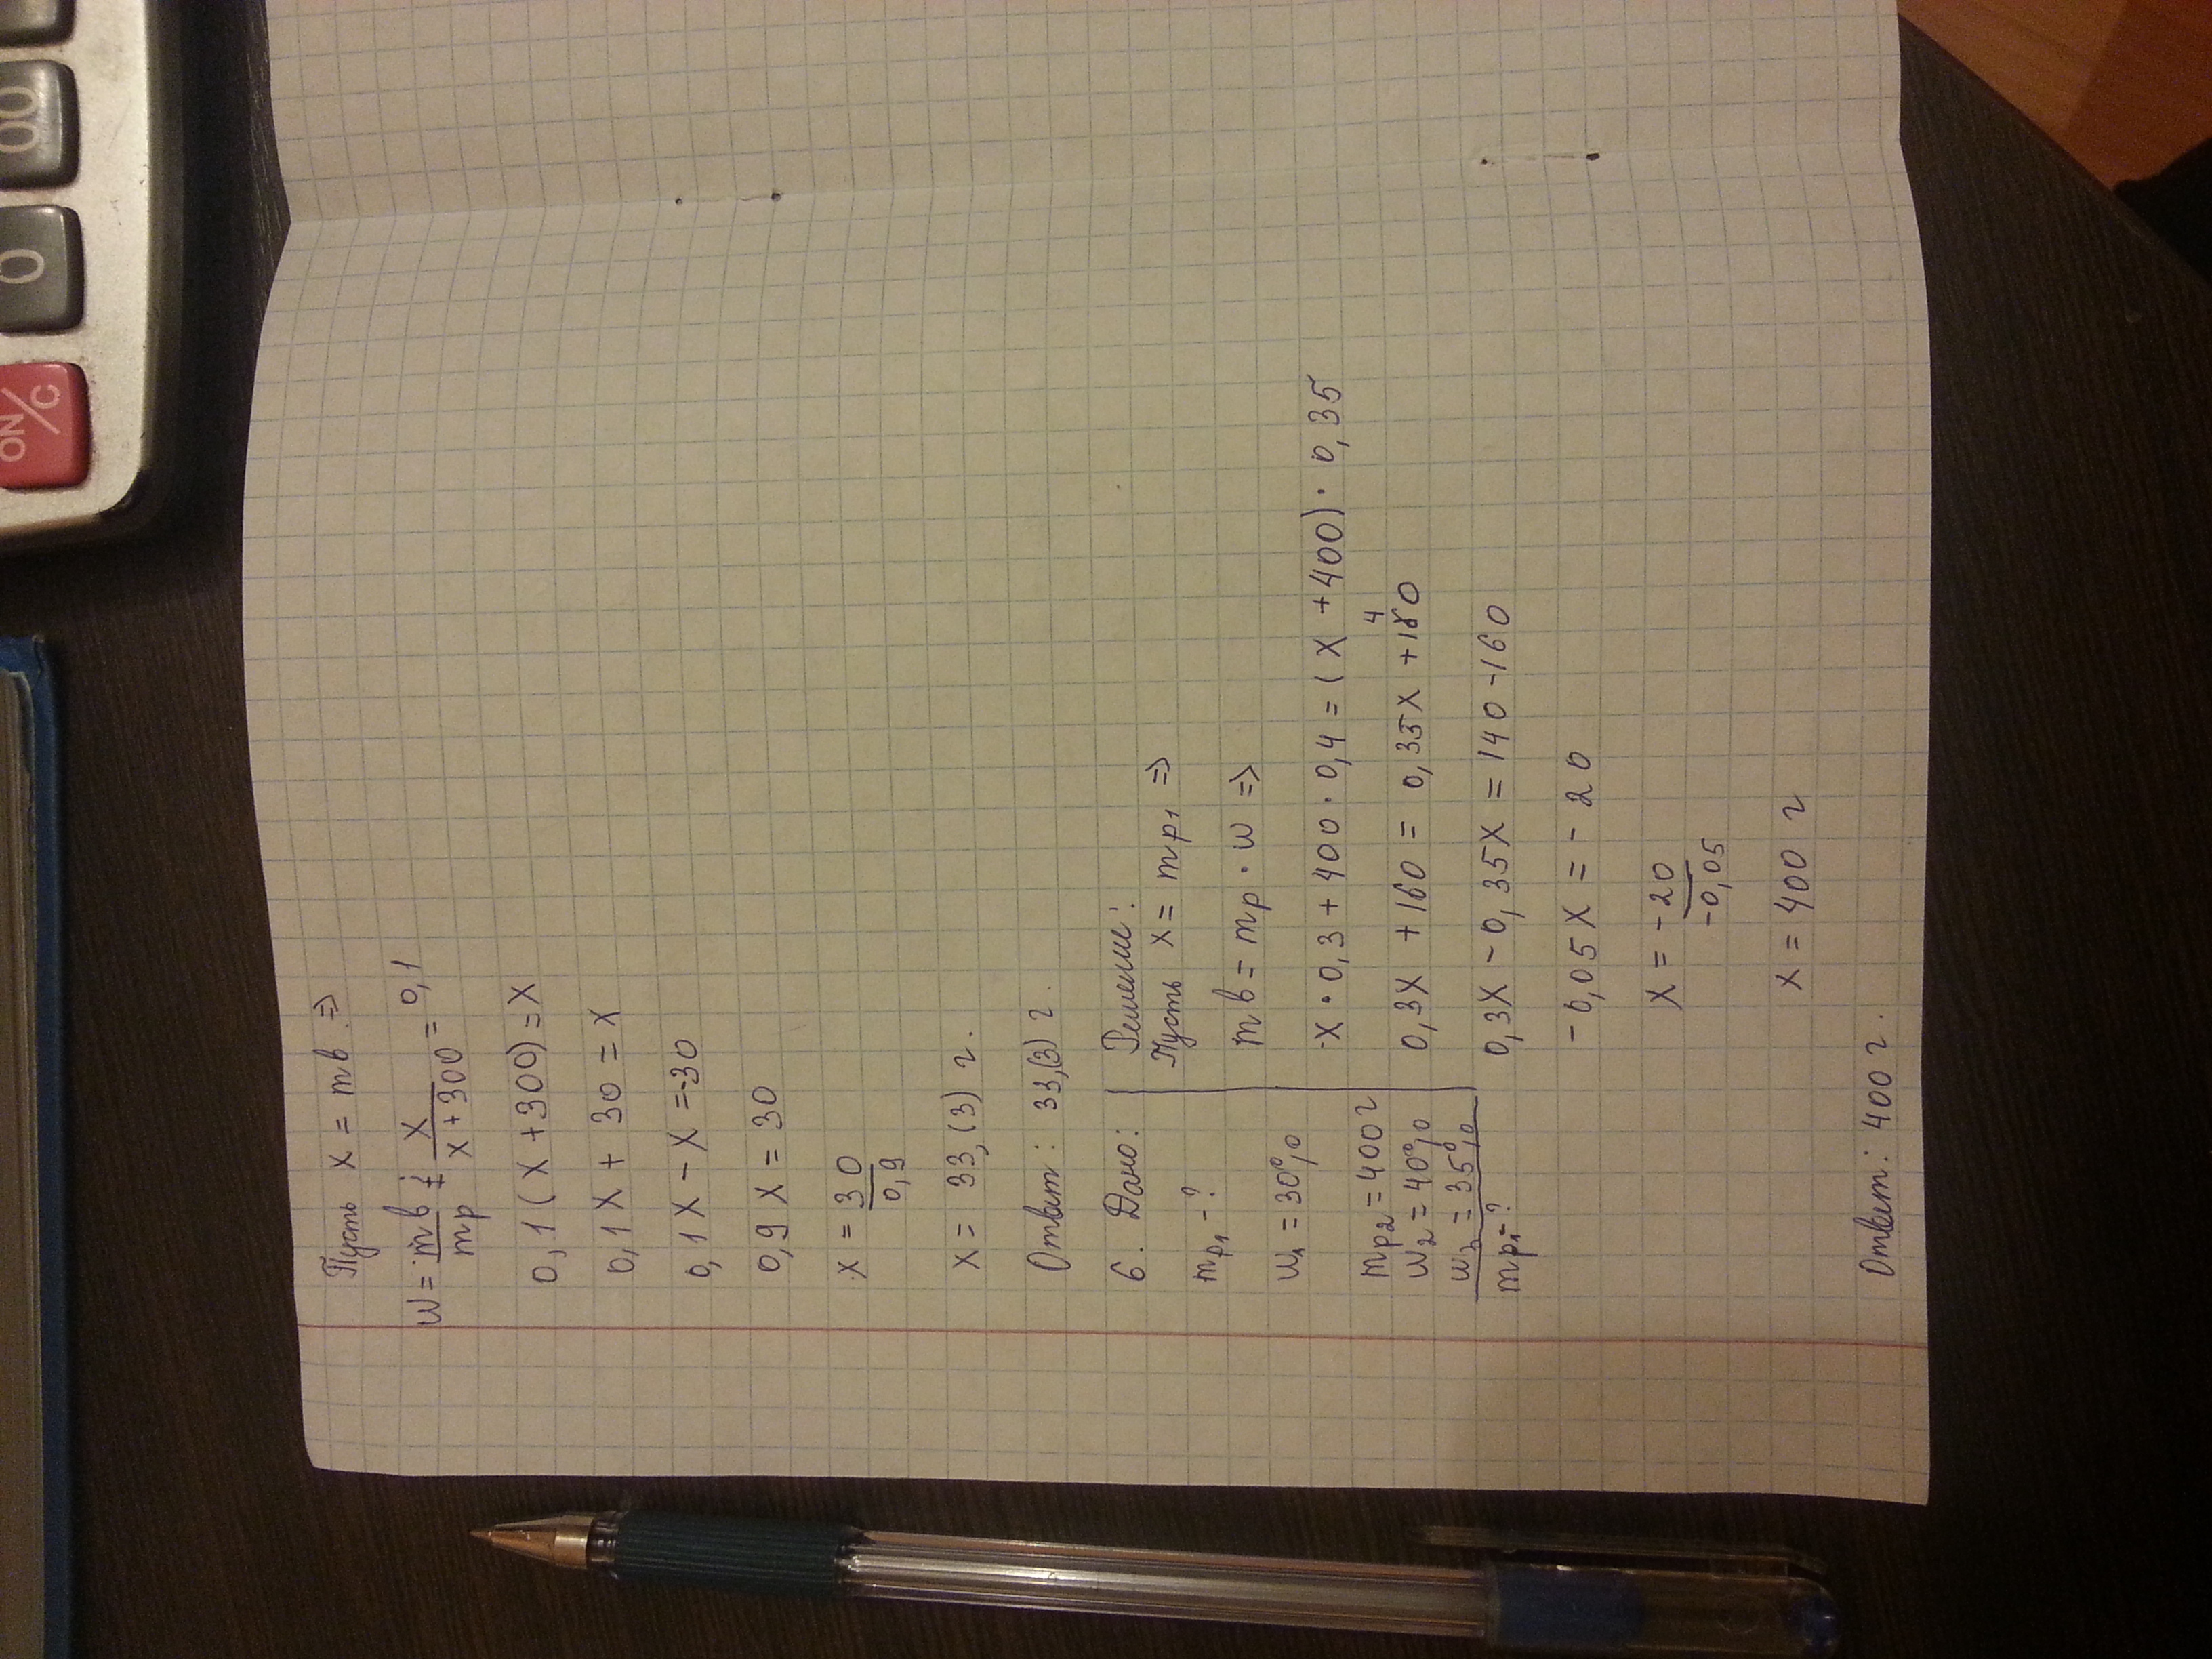 Пусть x = mв =>
w = mв/mр = x/x+300 = 0,1
0,1(x+300)=x
0,1x+30=x
0,1x-x=-30
0,9x=30
x=30/0,9
x= 33,(3) г.
Ответ: 33,(3) г.
6. Дано:
mр1 - ?
w1 = 30%
mр2 = 400 г
w2 = 40%
w3 = 35%
mр1 - ?
Решение:
Пусть x = mр1 =>
mв = mр · w =>
x · 0,3 + 400 · 0,4 = (x +400) · 0,35
0,3x + 160 = 0,35x + 140
0,3x - 0,35x = 140 - 160
- 0,05x = - 20
x = -20/-0,05
x = 400 г
Ответ: 400 г.
ON/C
0
00